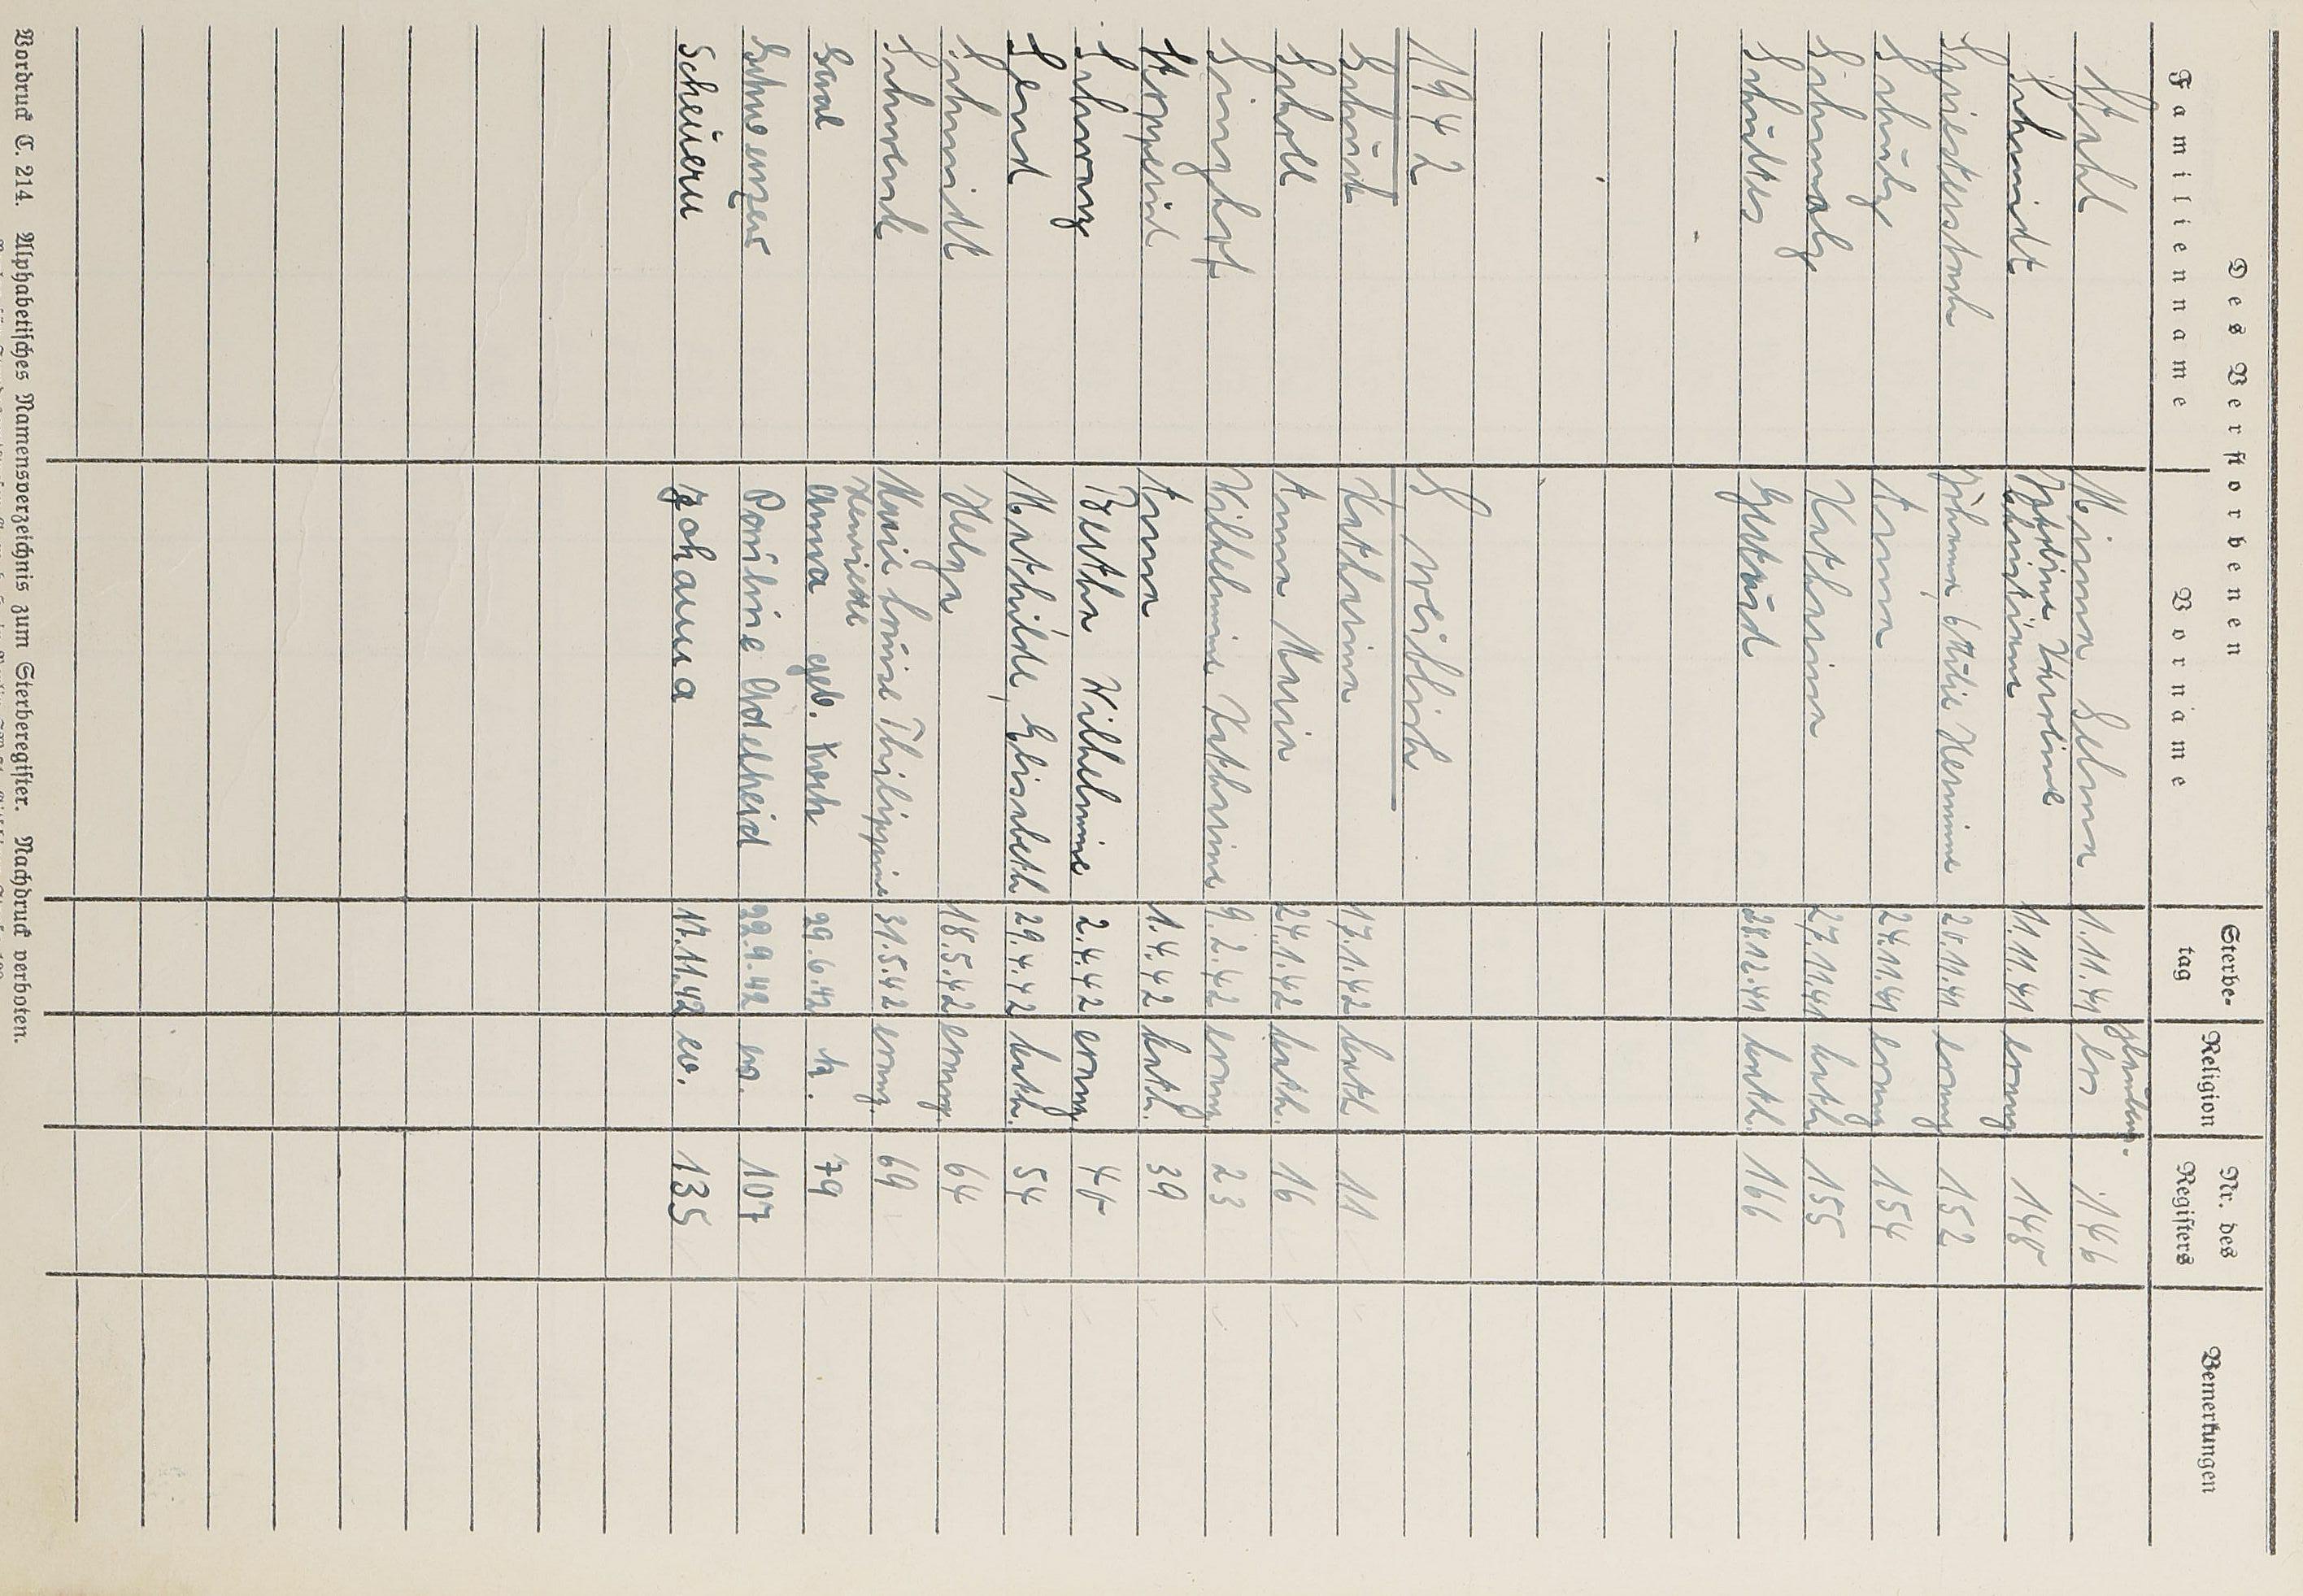 Des Verstorbenen
Familienname Vorname Sterbetag Religion Nr. des Registers Bemerkungen
Stahl Minna Selma 1.11.41 146
Schmidt Karoline Christine 11.11.41 evang 148
Johanna Ottilie Hermine 20.11.41 evang 152
Schulz Anna 24.11.41 evang 154
Schmalz Katharina 27.11.41 kath. 155
Schultes Gertrud 28.12.41 kath. 166
1942 S weiblich
Schürt Katharina 17.1.42 kath 11
Scholl Anna Maria 24.1.42 kath. 16
Singhof Wilhelmine Katharine 9.2.42 evang. 23
Anna 1.4.42 kath. 39
Schwarz Bertha Wilhelmine 2.4.42 evang 40
Send Mathilde, Elisabeth 29.4.42 kath. 54
Schmidt Helga 18.5.42 evang. 64
Schwenk Marie Louise Philippine Henriette 31.5.42 evang. 69
Saal Anna geb. Koch 29.6.42 k. 79
Schneenzer Pauline Adelheid 22.9.42 ev. 107
Scheuern Johanna 17.11.42 ev. 135
Vordruck C. 214. Alphabetisches Namensverzeichnis zum Sterberegister. Nachdruck verboten.